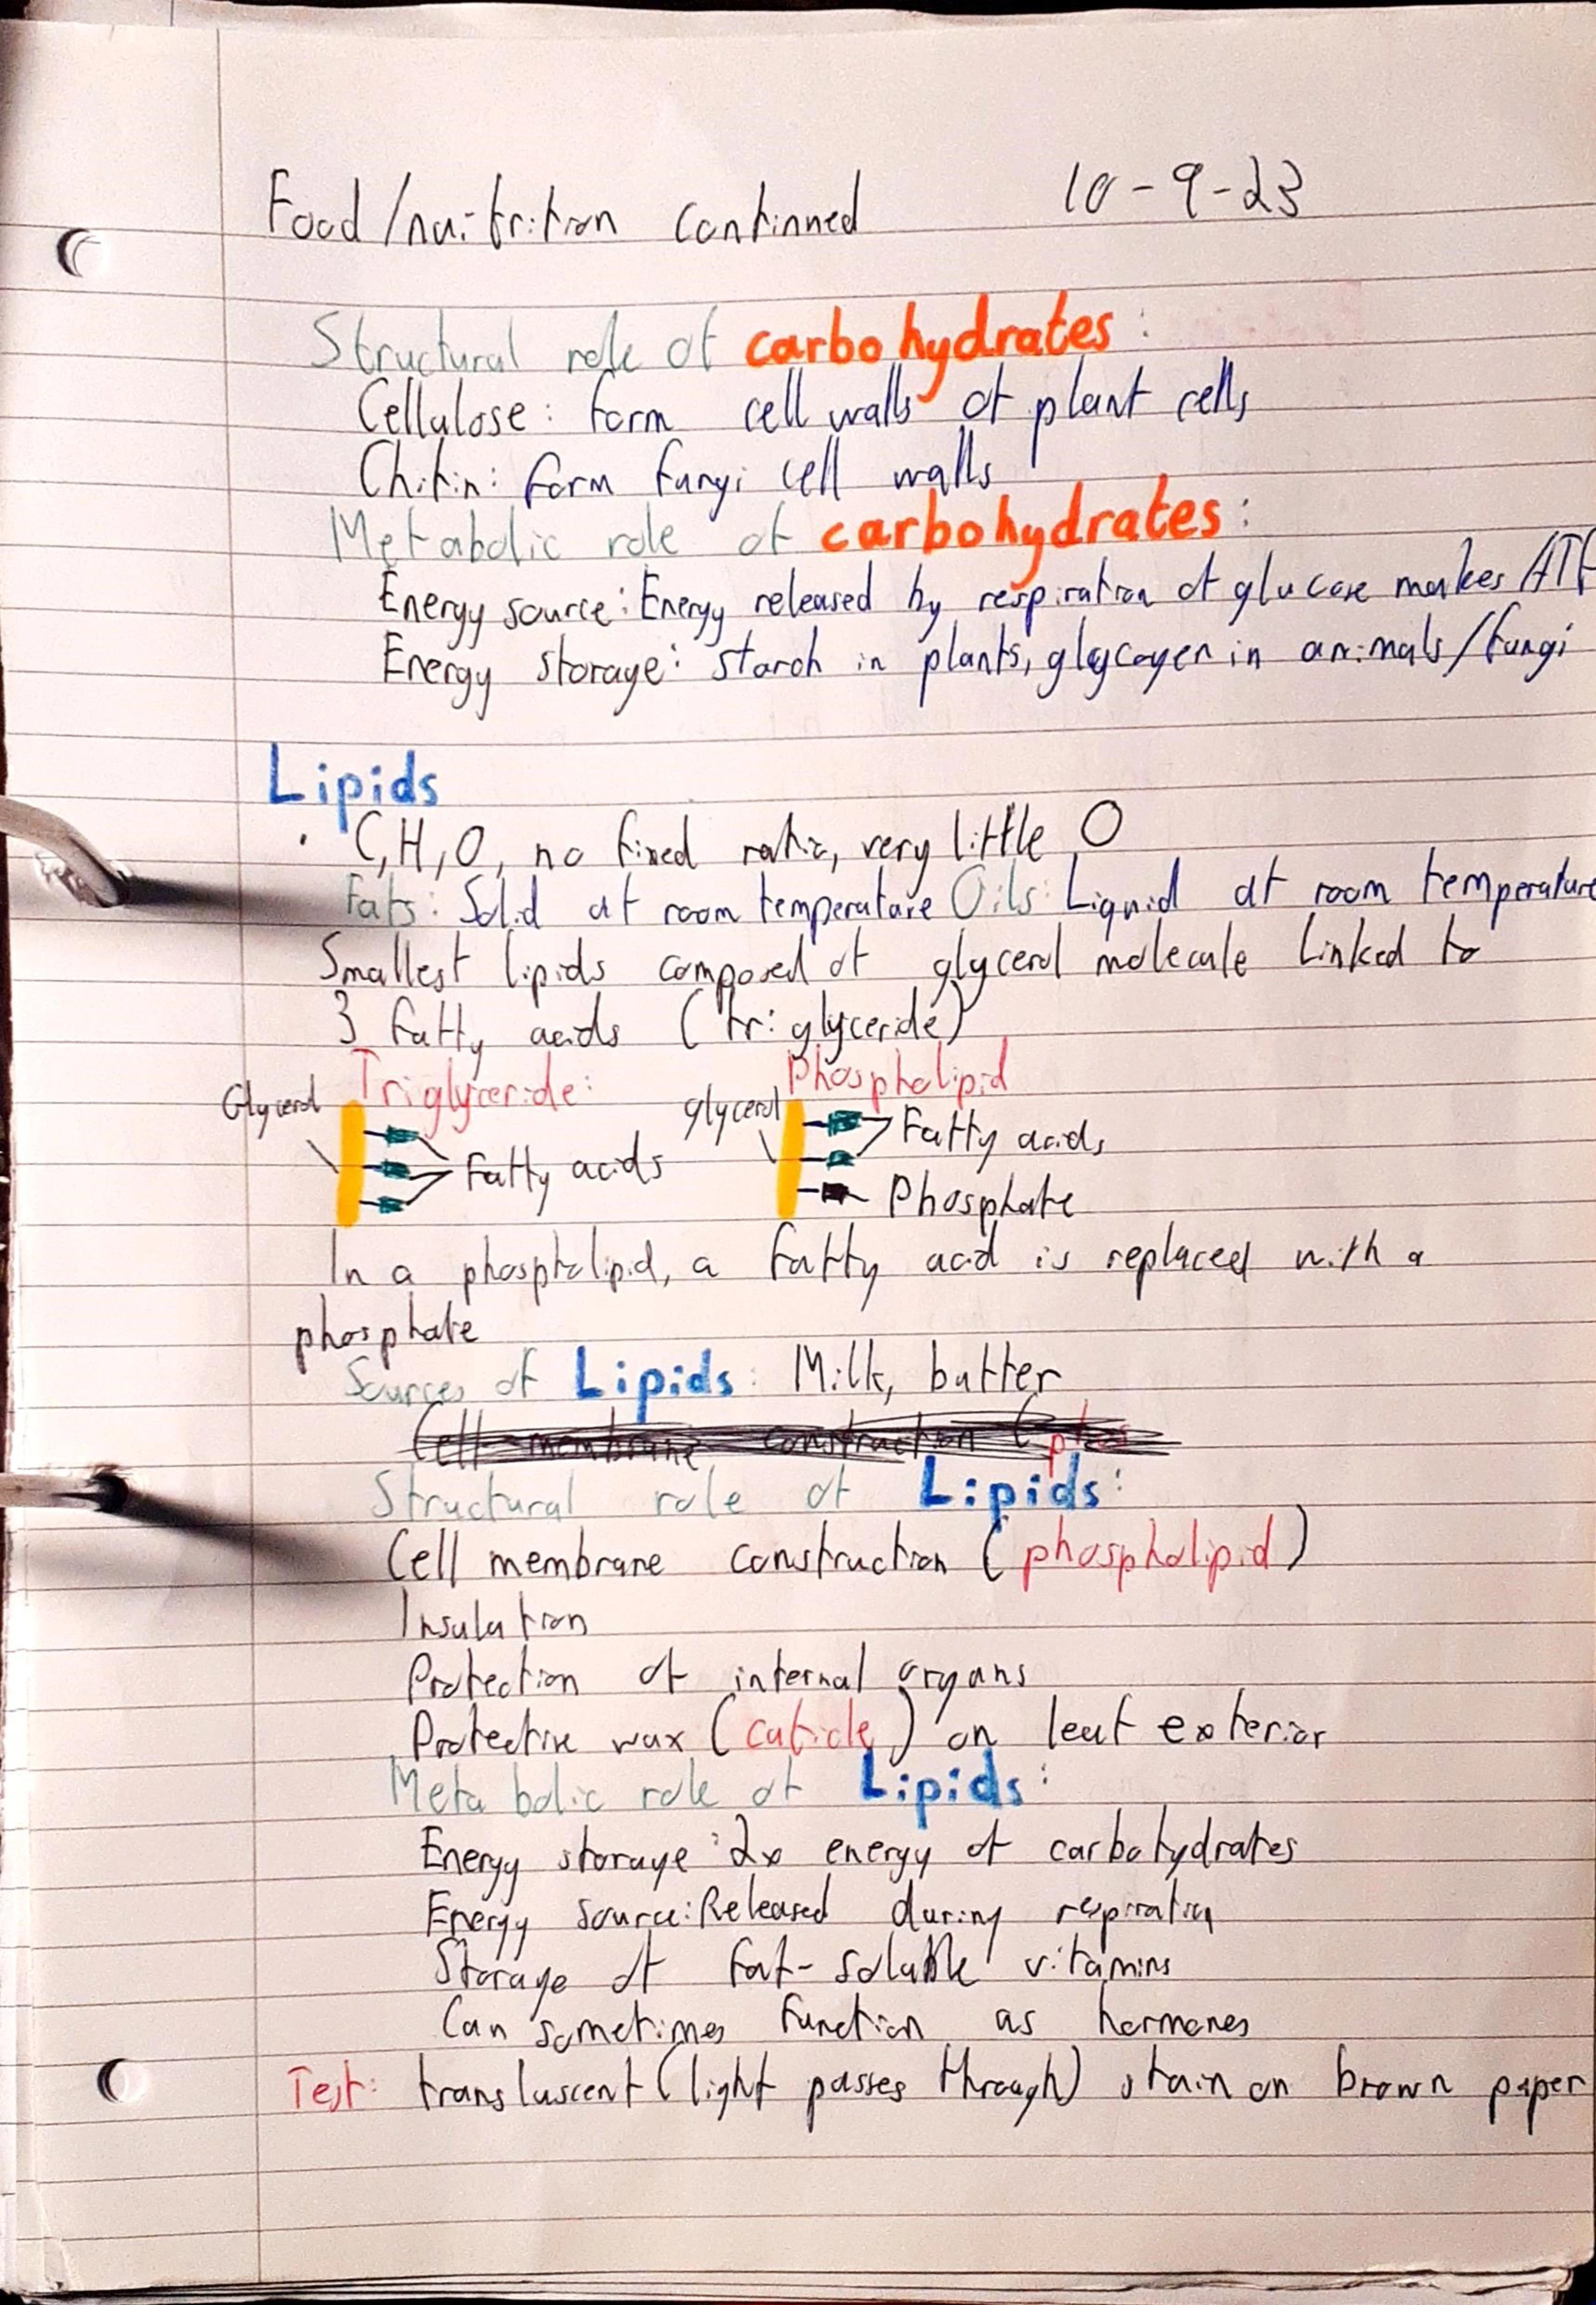 Food/nutrition continued 10-9-23
Structural role of carbohydrates:
Cellulose: form cell walls of plant cells
Chitin: form fungi cell walls
Metabolic role of carbohydrates:
Energy source: Energy released by respiration of glucose makes ATP
Energy storage: starch in plants, glycogen in animals/fungi
Lipids
· C,H,O, no fixed ratio, very little O
Fats: Solid at room temperature Oils: Liquid at room temperature
Smallest lipids composed of glycerol molecule linked to
3 fatty acids (triglyceride)
Triglyceride: Phospholipid
Glycerol glycerol
Fatty acids Fatty acids
Phosphate
In a phospholipid, a fatty acid is replaced with a
phosphate
Sources of Lipids: Milk, butter
Cell membrane construction (pho
Structural role of Lipids:
Cell membrane construction (phospholipid)
Insulation
Protection of internal organs
Protective wax (cuticle) on leaf exterior
Metabolic role of Lipids:
Energy storage: 2x energy of carbohydrates
Energy source: Released during respiration
Storage of fat-soluble vitamins
Can sometimes function as hormones
Test: transluscent (light passes through) stain on brown paper